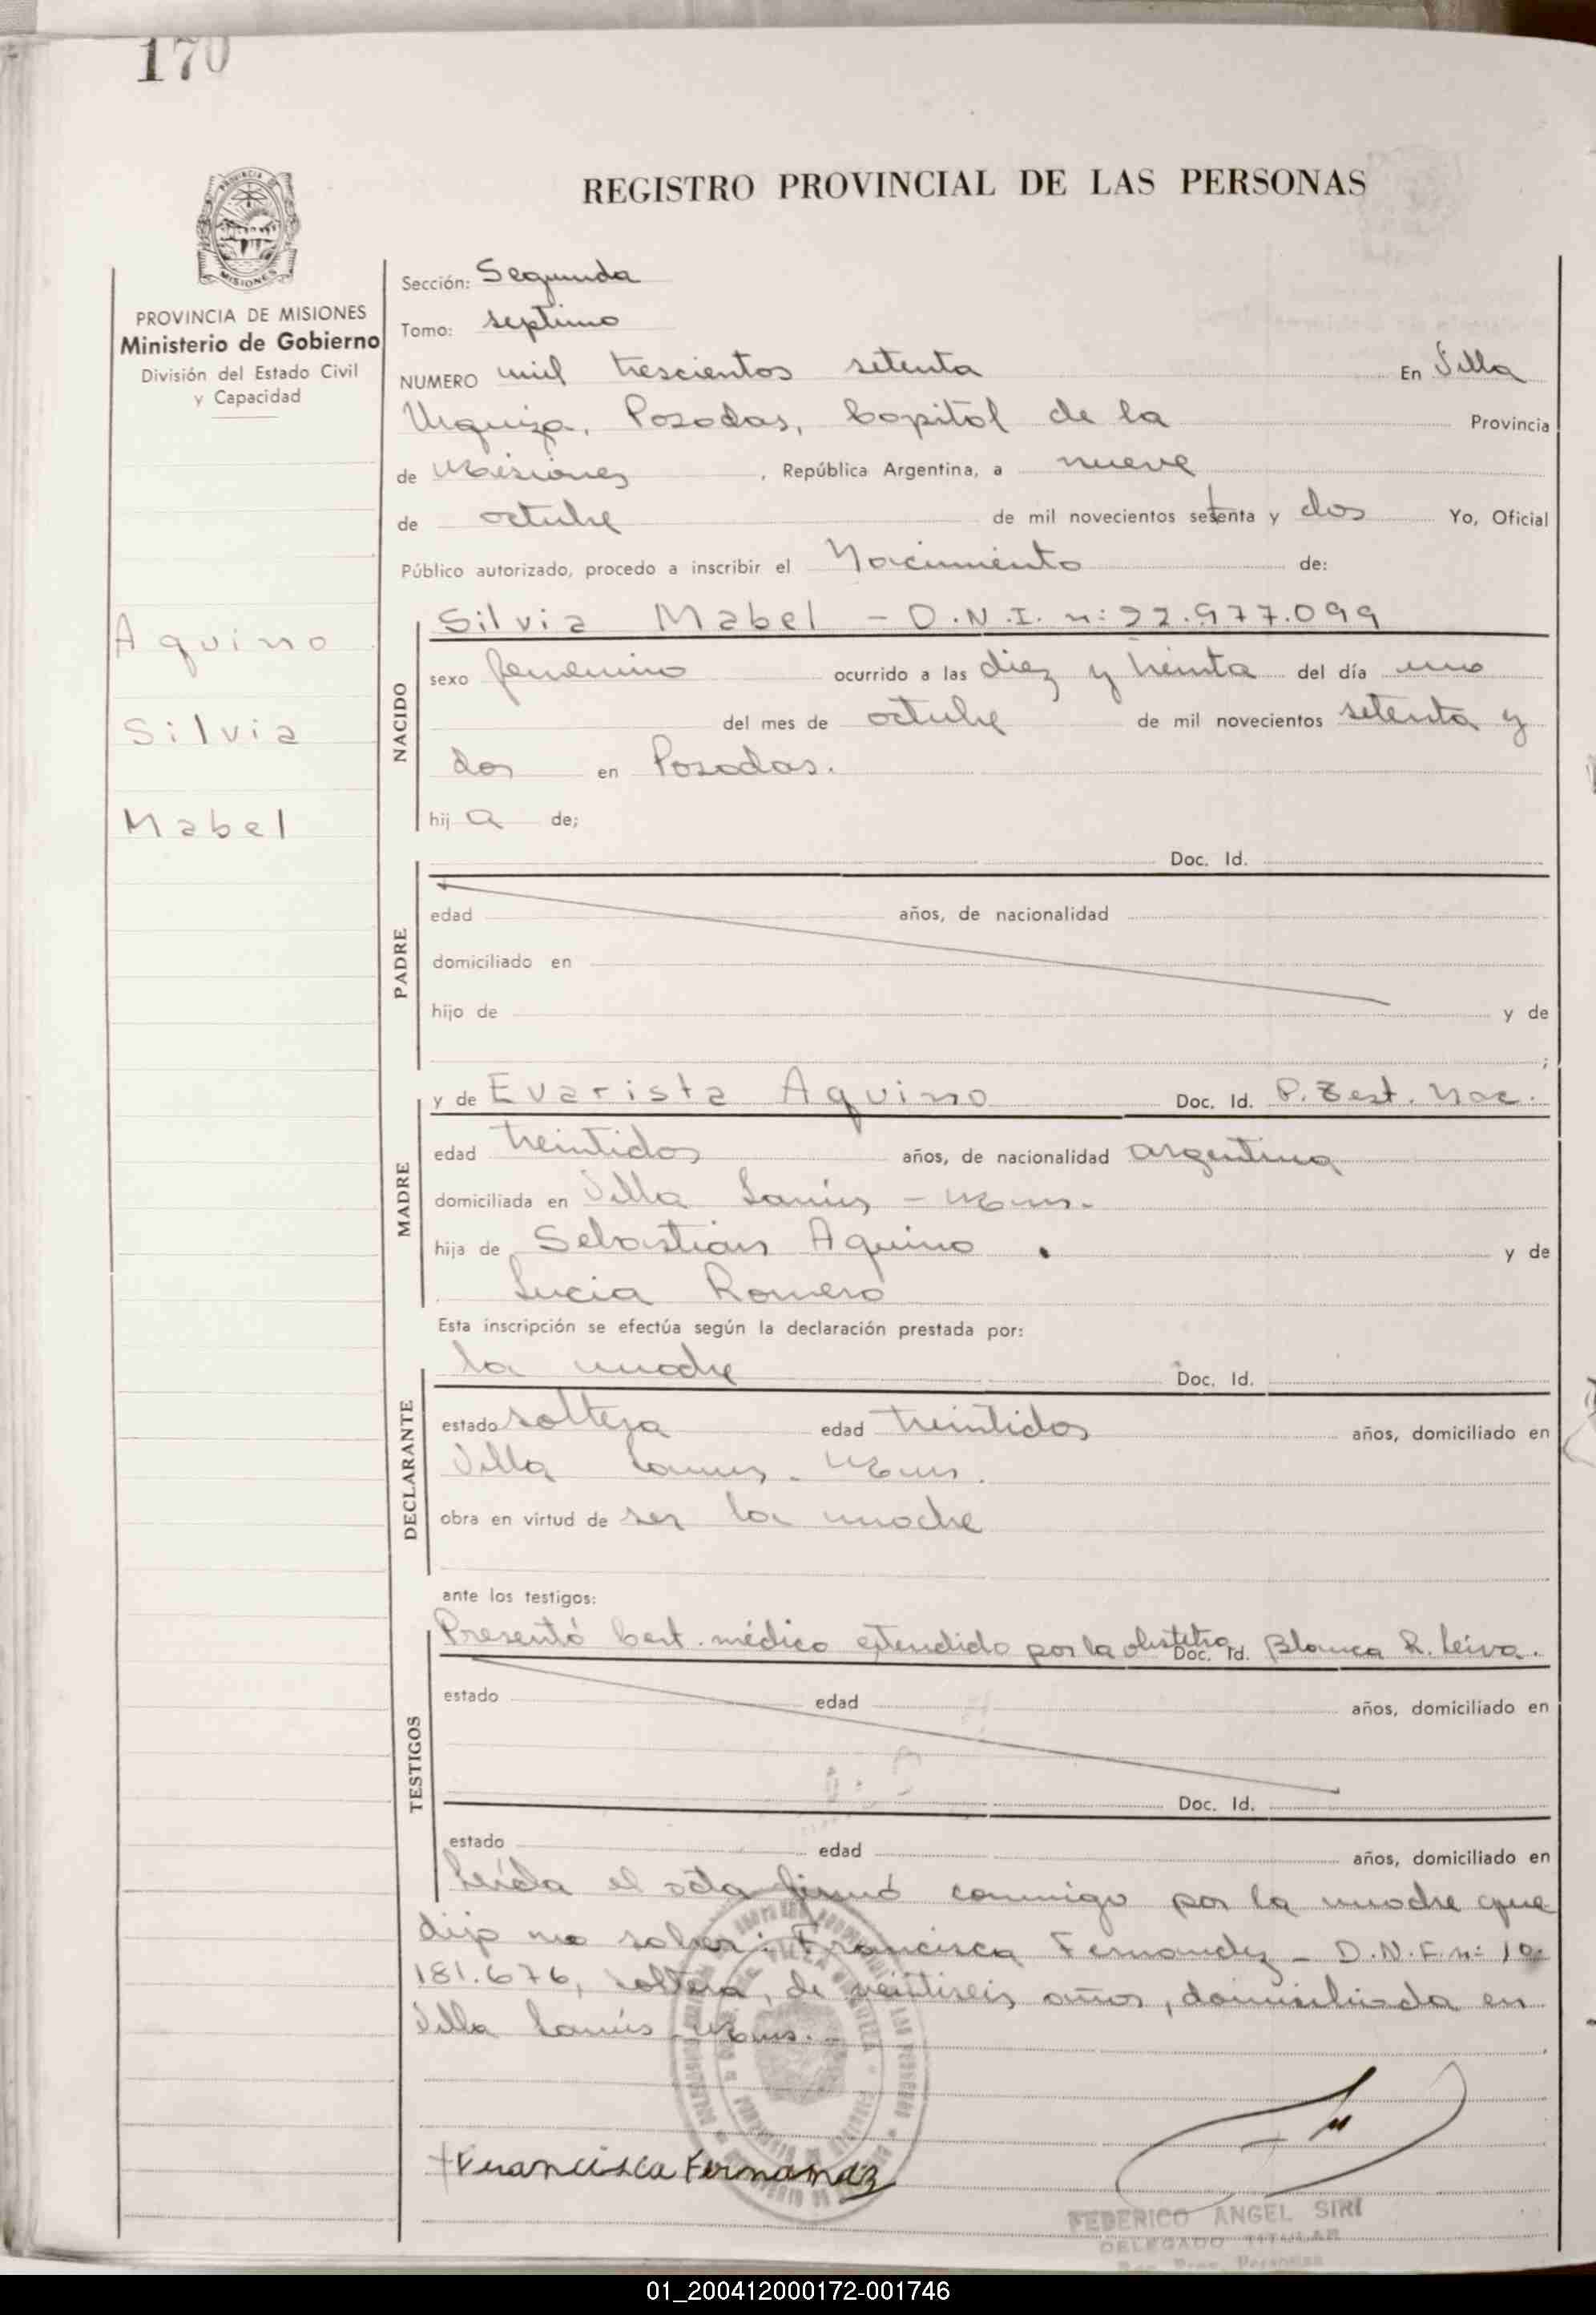 170
REGISTRO PROVINCIAL DE LAS PERSONAS
PROVINCIA DE MISIONES
Ministerio de Gobierno
División del Estado Civil
y Capacidad
Aquino
Silvia
Mabel
Sección: Segunda
Tomo: septimo
NUMERO mil trescientos setenta En Villa
Urquiza, Posadas, Capital de la Provincia
de Misiones, República Argentina, a nueve
de octubre de mil novecientos setenta y dos Yo, Oficial
Público autorizado, procedo a inscribir el Nacimiento de:
NACIDO
Silvia Mabel - D.N.I. n: 22.977.099
sexo femenino ocurrido a las diez y treinta del día uno
del mes de octubre de mil novecientos setenta y
dos en Posadas.
hij a de;
PADRE
Doc. Id.
edad años, de nacionalidad
domiciliado en
hijo de y de
;
MADRE
y de Evarista Aquino Doc. Id.
edad treintidos años, de nacionalidad argentina
domiciliada en Villa Lanús -
hija de Sebastián Aquino y de
Lucia Romero
Esta inscripción se efectúa según la declaración prestada por:
DECLARANTE
la madre Doc. Id.
estado soltera edad treintidos años, domiciliado en
Villa Lanus -
obra en virtud de ser la madre
ante los testigos:
TESTIGOS
Presentó Cert. médico extendido por la obstetra Doc. Id. Blanca R. Leiva.
estado edad años, domiciliado en
Doc. Id.
estado edad años, domiciliado en
Leída el acta firmó conmigo por la madre que
dijo no saber: Francisca Fernandez - D.N.I. n: 10.
181.676, soltera, de veintiseis años, domiciliada en
Villa Lanús -
Francisca Fernandez
FEDERICO ANGEL SIRI
DELEGADO TITULAR
Reg. Prov. Personas
01_200412000172-001746